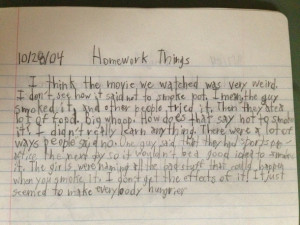 10/28/04 Homework Things
I think the movie we watched was very weird.
I don't see how it said not to smoke pot. I mean, the guy
smoked it, and other people tried it. Then they ate a
lot of food. big whoop. How does that say not to smoke
it? I didn't really learn anything. There were a lot of
ways people said no. One guy said that they had person
office the next guy so it wouldn't be a good idea to smoke
it. The girls were naming all the bad stuff that could happen
when you smoke it. I don't get the effects of it. It just
seemed to make everybody hungrier